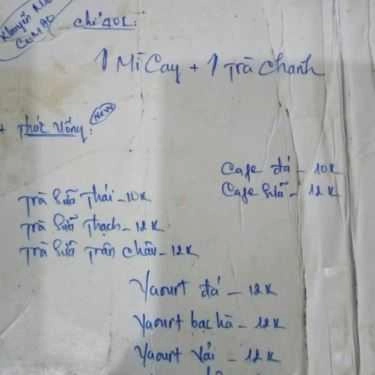 Khuyến Mãi
Chỉ 20k:
1 Mì Cay + 1 Trà chanh
+ Thức Uống: New
Cafe đá - 10K
Cafe sữa - 12K
Trà Sữa Thái - 10K
Trà Sữa Thạch - 12K
Trà Sữa Trân Châu - 12K
Yaourt đá - 12K
Yaourt bạc hà - 12K
Yaourt vải - 12K